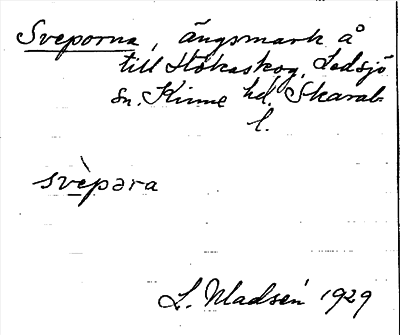 Sveporna, ängsmark å
till Stökaskog, Ledsjö
sn. Kinne hd. Skarab.
l.
svèpəra
L. Madsén 1929